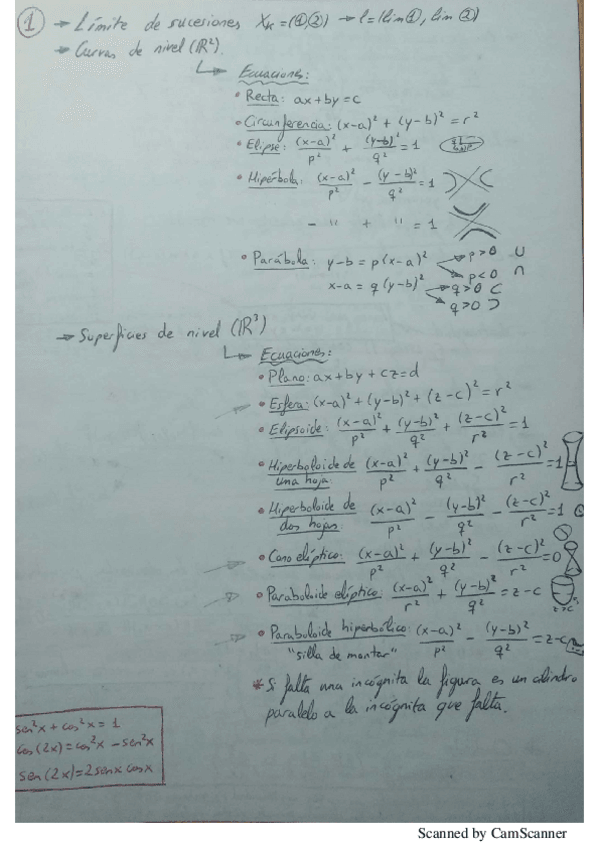 ① → Límite de sucesiones Xₖ = (①,②) → l = (lim ①, lim ②)
→ Curvas de nivel (ℝ²).
↳ Ecuaciones:
• Recta: ax+by=c
• Circunferencia: (x-a)² + (y-b)² = r²
• Elipse: (x-a)²/p² + (y-b)²/q² = 1
• Hipérbola: (x-a)²/p² - (y-b)²/q² = 1
- " + " = 1
• Parábola: y-b = p(x-a)² p>0 ∪
p<0 ∩
x-a = q(y-b)² q>0 ⊂
q>0 ⊃
→ Superficies de nivel (ℝ³)
↳ Ecuaciones:
• Plano: ax+by+cz=d
• Esfera: (x-a)² + (y-b)² + (z-c)² = r²
• Elipsoide: (x-a)²/p² + (y-b)²/q² + (z-c)²/r² = 1
• Hiperboloide de una hoja: (x-a)²/p² + (y-b)²/q² - (z-c)²/r² = 1
• Hiperboloide de dos hojas: (x-a)²/p² - (y-b)²/q² - (z-c)²/r² = 1
• Cono elíptico: (x-a)²/p² + (y-b)²/q² - (z-c)²/r² = 0
• Paraboloide elíptico: (x-a)²/r² + (y-b)²/q² = z-c
z>c
• Paraboloide hiperbólico: (x-a)²/p² - (y-b)²/q² = z-c
"silla de montar"
* Si falta una incógnita la figura es un cilindro
paralelo a la incógnita que falta.
sen²x + cos²x = 1
cos(2x) = cos²x - sen²x
sen(2x) = 2senx cosx
Scanned by CamScanner